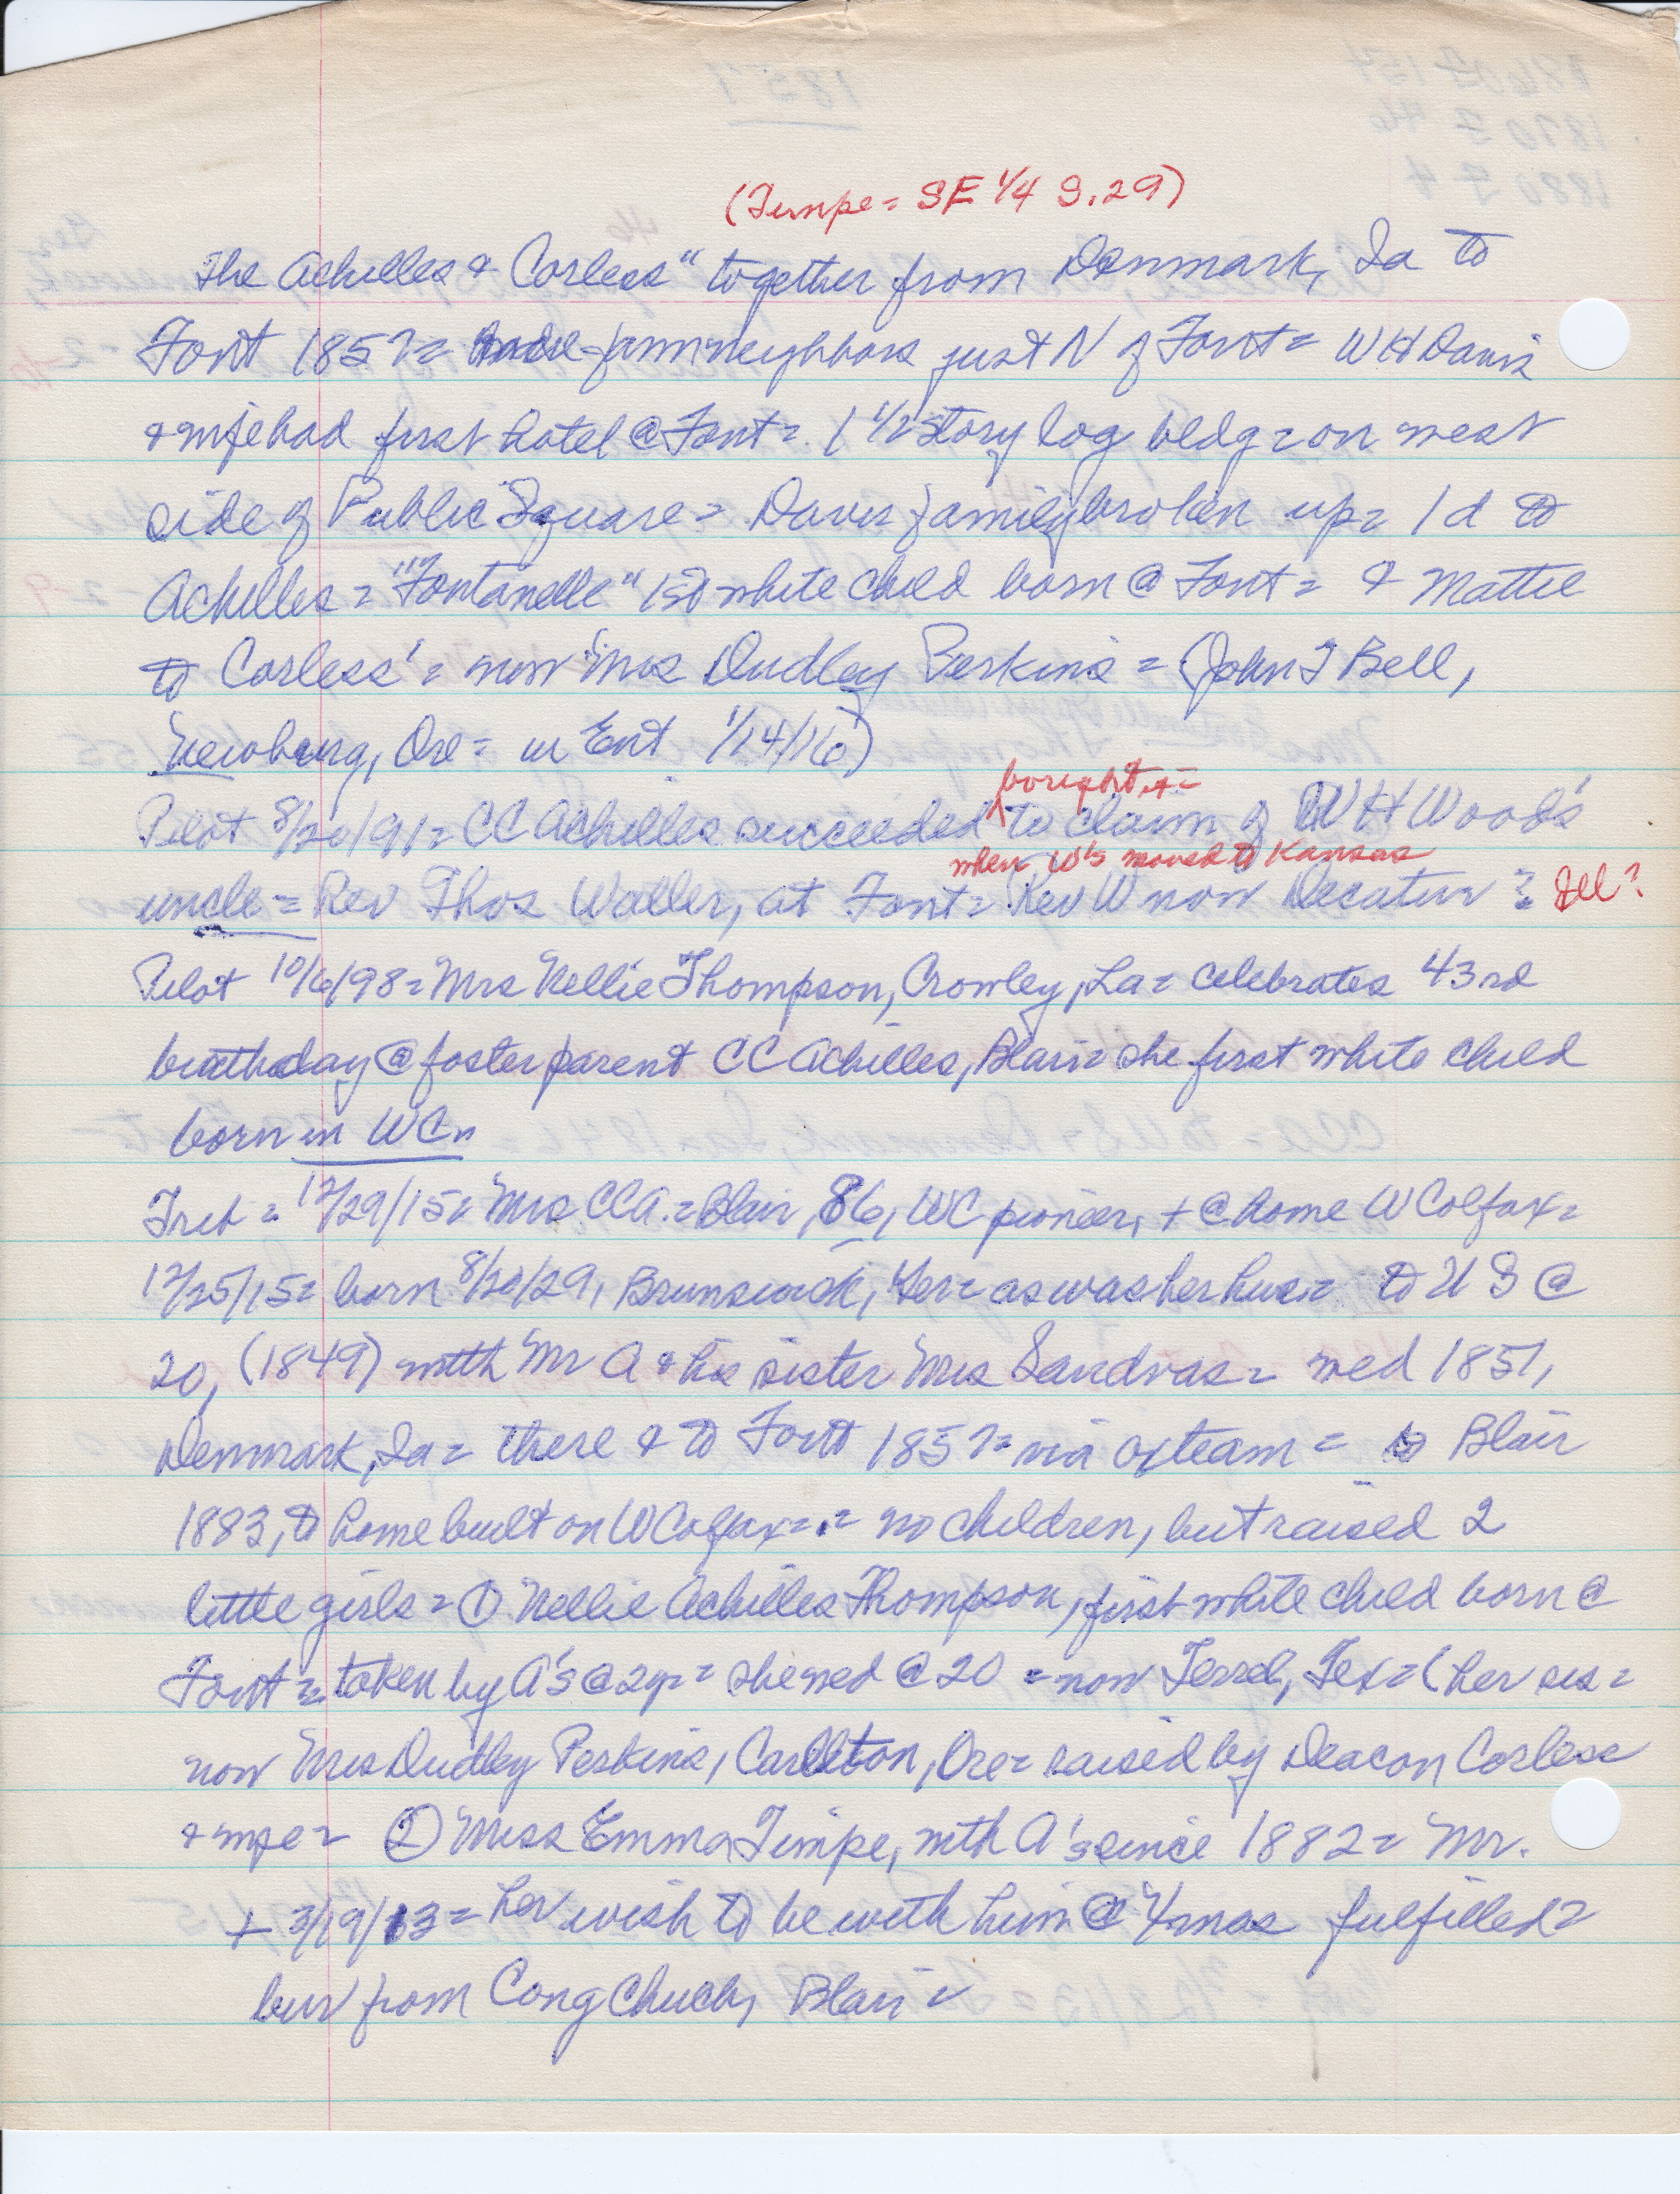 (Timpe = SE 1/4 S. 29)
The Achilles & Corless" together from Denmark, Ia to
Font 1857 = farm neighbors just N of Font = WH Davis
& wife had first hotel @ Font = 1 1/2 story log bldg = on west
side of Public Square = Davis family broken up = 1 d to
Achilles = "Fontanelle" 1st white child born @ Font = & Mattie
to Corless' = now Mrs Dudley Perkins = (John T Bell,
Newberg, Ore = in Ent 1/14/16)
bought it =
Pilot 8/20/91 = CC Achilles succeeded ^ to claim of WH Woods'
when W's moved to Kansas
uncle = Rev Thos Waller, at Font = Rev W now Decatur ? Ill?
Pilot 10/6/98 = Mrs Nellie Thompson, Crowley, La = celebrates 43rd
birthday @ foster parent CC Achilles, Blair = she first white child
born in WCn
Trib = 12/29/15 = Mrs CCA. = Blair, 86, WC pioneer, + @ home W Colfax =
12/25/15 = born 8/20/29, Brunswick, Ger = as was her hus = to US @
20, (1849) with Mr A & his sister Mrs Sandvas = wed 1851,
Denmark, Ia = there & to Font 1857 = via oxteam = to Blair
1883, to home built on W Colfax = . = no children, but raised 2
little girls = ① Nellie Achilles Thompson, first white child born @
Font = taken by A's @ 2yr = she wed @ 20 = now Terrel, Tex = (her sis =
now Mrs Dudley Perkins, Carlton, Ore = raised by Deacon Corless
& wife = ② Miss Emma Timpe, with A's since 1882 = Mr.
+ 3/19/13 = her wish to be with him @ Xmas fulfilled =
bur from Cong Chuch, Blair =